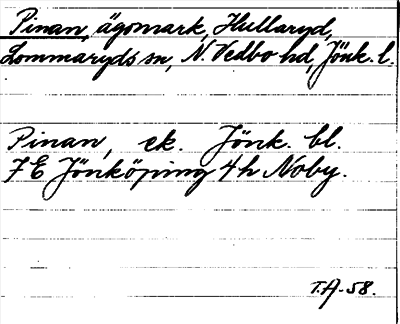 Pinan, ägomark, Hullaryd,
Lommaryds sn, N. Vedbo hd, Jönk. l.
Pinan, ek. Jönk. bl.
7E Jönköping 4h Noby.
T.A-58.